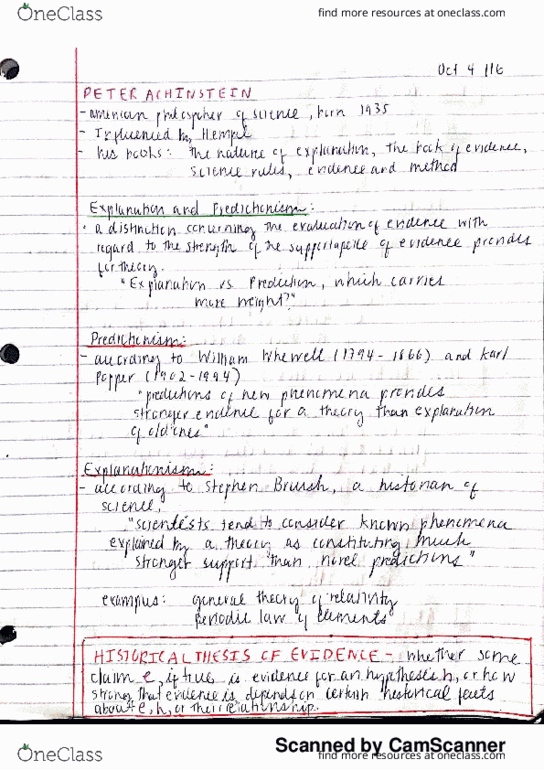 OneClass
find more resources at oneclass.com
Oct 4 /16
PETER ACHINSTEIN
- american philosopher of science, born 1935
- Influenced by Hempel
- his books: The nature of explanation, The book of evidence,
science rules, evidence and method
Explanation and Predictionism:
• a distinction concerning the evaluation of evidence with
regard to the strength of the support a piece of evidence provides
for theory.
"Explanation vs Prediction, which carries
more weight?"
Predictionism:
- according to William Whewell (1794 - 1866) and Karl
Popper (1902 - 1994)
"predictions of new phenomena provides
stronger evidence for a theory than explanation
of old ones"
Explanationism:
- according to Stephen Brush, a historian of
science,
"scientists tend to consider known phenomena
explained by a theory as constituting much
stronger support than novel predictions"
examples: general theory of relativity
periodic law of elements
HISTORICAL THESIS OF EVIDENCE - whether some
claim e, if true, is evidence for an hypothesis h, or how
strong that evidence is, depends on certain historical facts
about e, h, or their relationship.
Scanned by CamScanner
OneClass
find more resources at oneclass.com